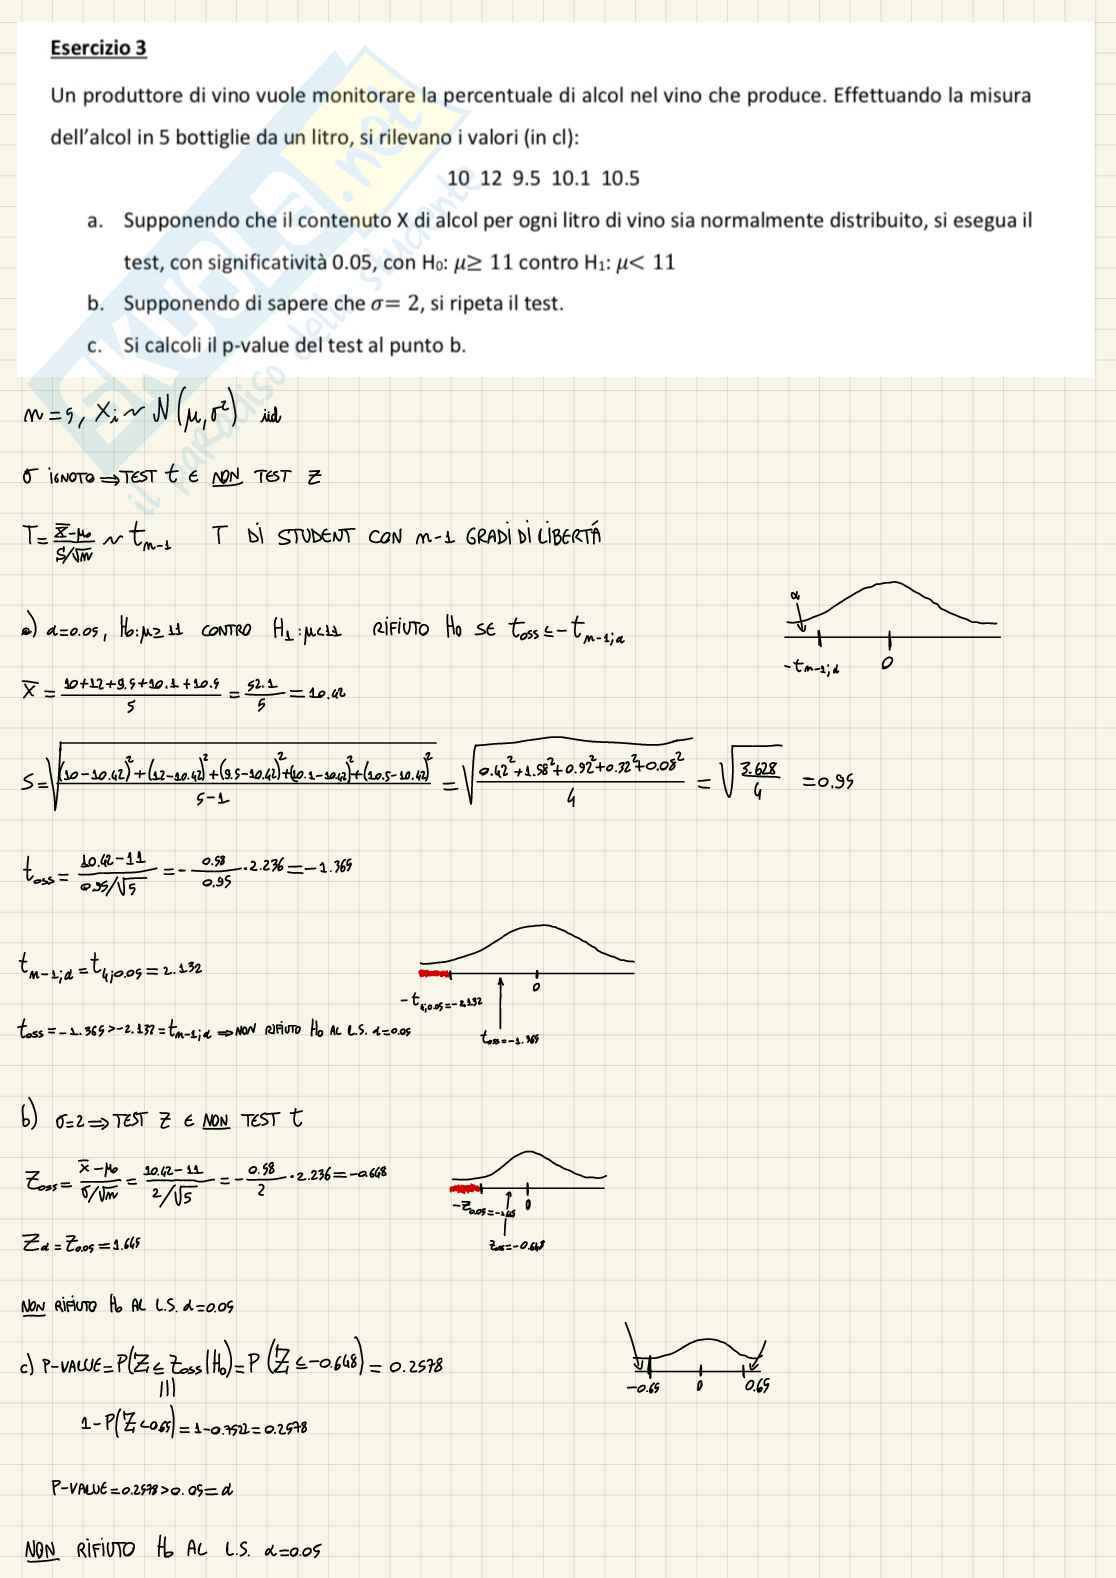 Esercizio 3
Un produttore di vino vuole monitorare la percentuale di alcol nel vino che produce. Effettuando la misura
dell'alcol in 5 bottiglie da un litro, si rilevano i valori (in cl):
10 12 9.5 10.1 10.5
a. Supponendo che il contenuto X di alcol per ogni litro di vino sia normalmente distribuito, si esegua il
test, con significatività 0.05, con H₀: μ≥ 11 contro H₁: μ< 11
b. Supponendo di sapere che σ= 2, si ripeta il test.
c. Si calcoli il p-value del test al punto b.
SKUOLA.net
il paradiso dello studente
n=5, Xᵢ ~ N(μ, σ²) iid
σ IGNOTO ⇒ TEST t E NON TEST Z
T = (X̄-μ₀)/(S/√n) ~ t_{n-1} T DI STUDENT CON n-1 GRADI DI LIBERTÁ
a) α=0.05, H₀:μ≥11 CONTRO H₁:μ<11 RIFIUTO H₀ SE t_oss ≤ -t_{n-1;α}
α
-t_{n-1;α} 0
X̄ = (10+12+9.5+10.1+10.5)/5 = 52.1/5 = 10.42
S = √(((10-10.42)²+(12-10.42)²+(9.5-10.42)²+(10.1-10.42)²+(10.5-10.42)²)/(5-1)) = √((0.42²+1.58²+0.92²+0.32²+0.08²)/4) = √(3.628/4) = 0.95
t_oss = (10.42-11)/(0.95/√5) = -(0.58/0.95)·2.236 = -1.365
t_{n-1;α} = t_{4;0.05} = 2.132
-t_{4;0.05}=-2.132 0
t_oss = -1.365 > -2.132 = t_{n-1;α} ⇒ NON RIFIUTO H₀ AL L.S. α=0.05
t_oss=-1.365
b) σ=2 ⇒ TEST Z E NON TEST t
Z_oss = (X̄-μ₀)/(σ/√n) = (10.42-11)/(2/√5) = -(0.58/2)·2.236 = -0.648
-Z_{0.05}=-1.645 0
Z_oss=-0.648
Z_α = Z_{0.05} = 1.645
NON RIFIUTO H₀ AL L.S. α=0.05
c) P-VALUE = P(Z ≤ Z_oss|H₀) = P(Z ≤ -0.648) = 0.2578
-0.65 0 0.65
|||
1-P(Z<0.65) = 1-0.7522 = 0.2578
P-VALUE = 0.2578 > 0.05 = α
NON RIFIUTO H₀ AL L.S. α=0.05